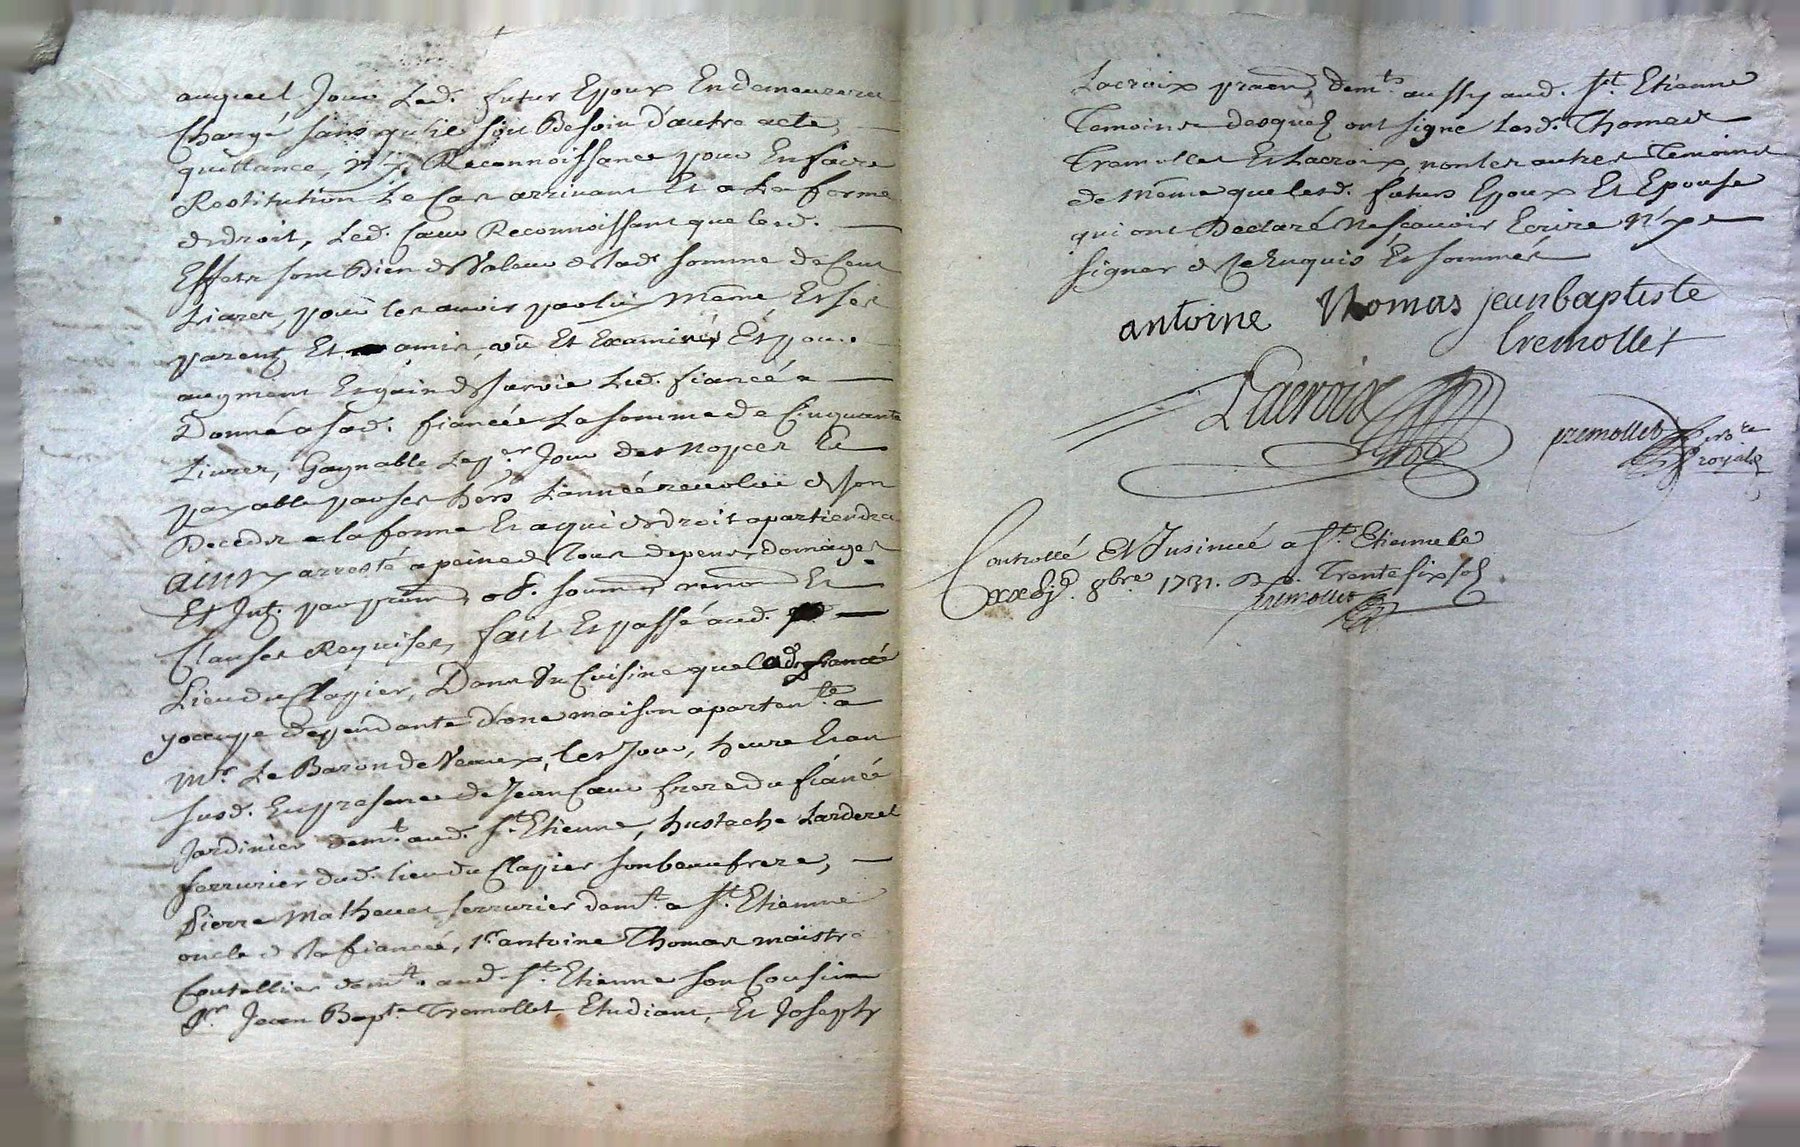 auquel Jour Led. futur Epoux En demeurera
Chargé sans qu'ile soit Besoin d'autre acte,
quittance, ny Reconnoissance pour En faire
Restitution Le Cas arrivant Et a La forme
de droit, Led. Caux Reconnoissant que lesd.
Effets sont Bien de Valeur de lad. somme de Cent
Livres, pour les avoir par luy même Et ses
parentz Et amis, vû Et Examinés Et pour
augment Et gain de survie Led. fiancé a
Donné a sad. fiancée La somme de Cinquante
Livres, Gagnable Le per. Jour des nopces Et
payable par ses hers L'année revolüe de son
Decedz a la forme Et a qui de droit apartiendra
ainsy arresté a peine de tous depens domages
Et Intz. par prom. ob. soum. renon. Et
Clauses Requises, fait Et passé aud.
Lieu du Clapier, Dans Un Cuisine que lad. fiancée
y occupe dependante d'une maison aparten.te a
Mr. Le Baron de Vaux, les Jour, heure Et an
susd. En presence de Jean Caux frere du fiancé
Jardinier demt. aud. St. Etienne, hustache Larderet
serrurier dud. lieu du Clapier son beau frere,
Pierre Mathevet serrurier demt. a St. Etienne
oncle de la fiancée, Sr. antoine Thomas maistre
Coutellier demt. aud. St. Etienne son Cousin
Sr. Jean Bapte. Tremollet Etudiant, Et Joseph
Lacroix praen. demts. aussy aud. St. Etienne
Temoins desquelz ont signé Lesd. Thomas
Tremollet Et Lacroix, non les autres Temoins
de même que lesd. futurs Epoux Et Epouse
qui ont Declaré Ne sçavoir Ecrire Ny
signer de ce Enquis Et sommés
antoine Thomas jean baptiste
tremollet
Lacroix
tremollet nore
royal
Controllé Et Insinué a St. Etienne le
8bre 1731. R. Trente six solz
tremollet